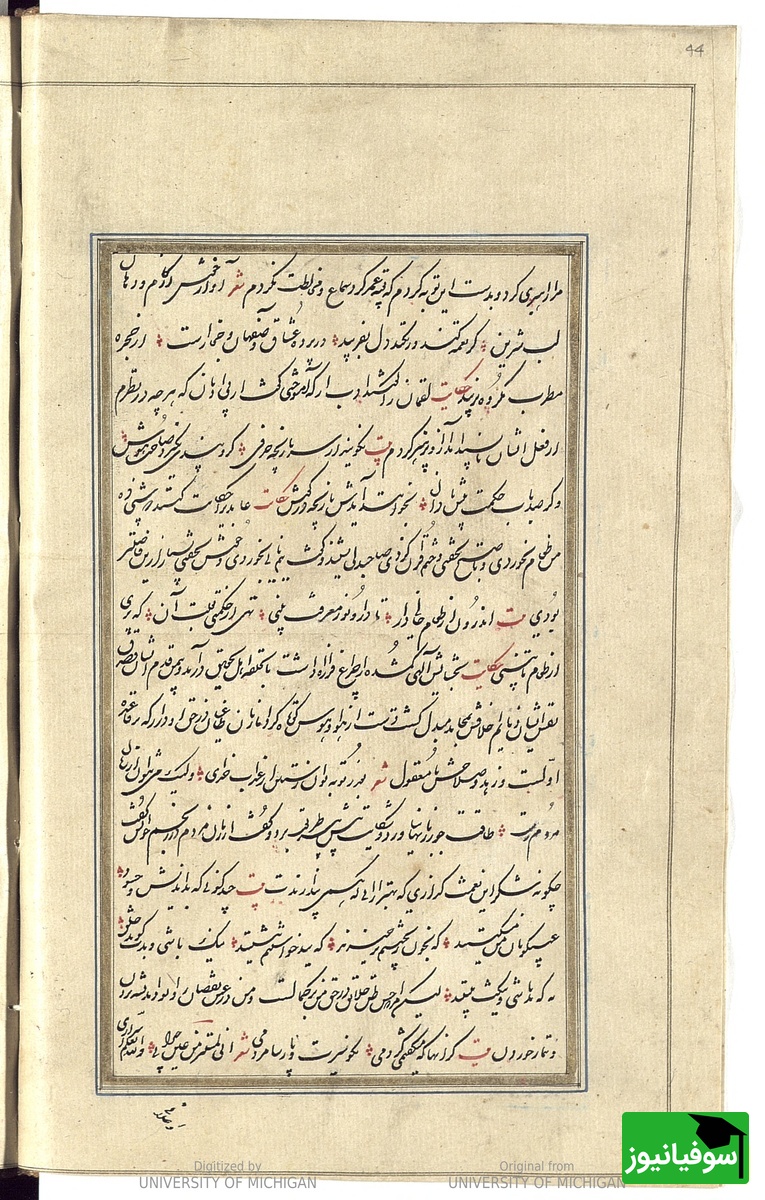 44
مرا رهبری کرد و بدست این توبه کردم که بقیه عمر گرد سماع و مخالطت نگردم شعر آواز خوش از کام و دهان
لب شیرین گر نغمه کند ور نکند دل بفریبد در پرده عشاق و صفهان و حجازست از حنجره
مطرب مکروه نزیبد حکایت لقمان را گفتند ادب از که آموختی گفت از بی ادبان که هر چه در نظرم
از فعل ایشان ناپسند آمد از آن پرهیز کردم بیت نگویند از سر بازیچه حرفی کزو پندی نگیرد صاحب هوش
وگر صد باب حکمت پیش نادان بخوانند آیدش بازیچه در گوش حکایت عابدی را حکایت کنند که شبی ده
من طعام بخوردی و تا صبح نخفتی و ختم قرآن کردی صاحبدلی شنید و گفت نیم نانی بخوردی و خوش بخفتی بسیار ازین فاضلتر
بودی بیت اندرون از طعام خالی دار تا درو نور معرفت بینی تهی از حکمتی بعلت آن که پری
از طعام تا بینی حکایت بخشایش الهی گمشده را چراغ فرا راه داشت تا بحلقه اهل تحقیق درآمد و بیمن قدم ایشان و صدق
نفس ایشان ذمایم اخلاقش بمحامد مبدل گشت دست از هوا و هوس کوتاه کرد و زبان طاعنان در حق او دراز که بر قاعده
اولست و زهد و صلاحش نامعقول شعر بعذر توبه توان رستن از عذاب خدای ولیک می نتوان از زبان
مردم رست طاقت جور زبانها نیاورد و شکایت پیش پیر طریقت برد و گفت از زبان مردم در رنجم جوابش گفت
چگونه شکر این نعمت گزاری که بهتر از آنی که همی پندارندت بیت چند گوئی که بد اندیش و حسود
عیب گویان من مسکینند که بخون ریختنم برخیزند که ببد خواستنم بنشینند نیک باشی و بدت گوید خلق
به که بد باشی و نیکت بینند لیکن مرا حسن ظن خلایق در حق من بر کمالست و من در عین نقصان روا بود اندیشه بردن
و تیمار خوردن بیت گر آنها که میگفتمی کردمی نکو سیرت و پارسا مردمی شعر انی لمستتر من عین جیرانی والله یعلم اسراری
و اعلانی
Digitized by Original from
UNIVERSITY OF MICHIGAN UNIVERSITY OF MICHIGAN
سوفیانیوز